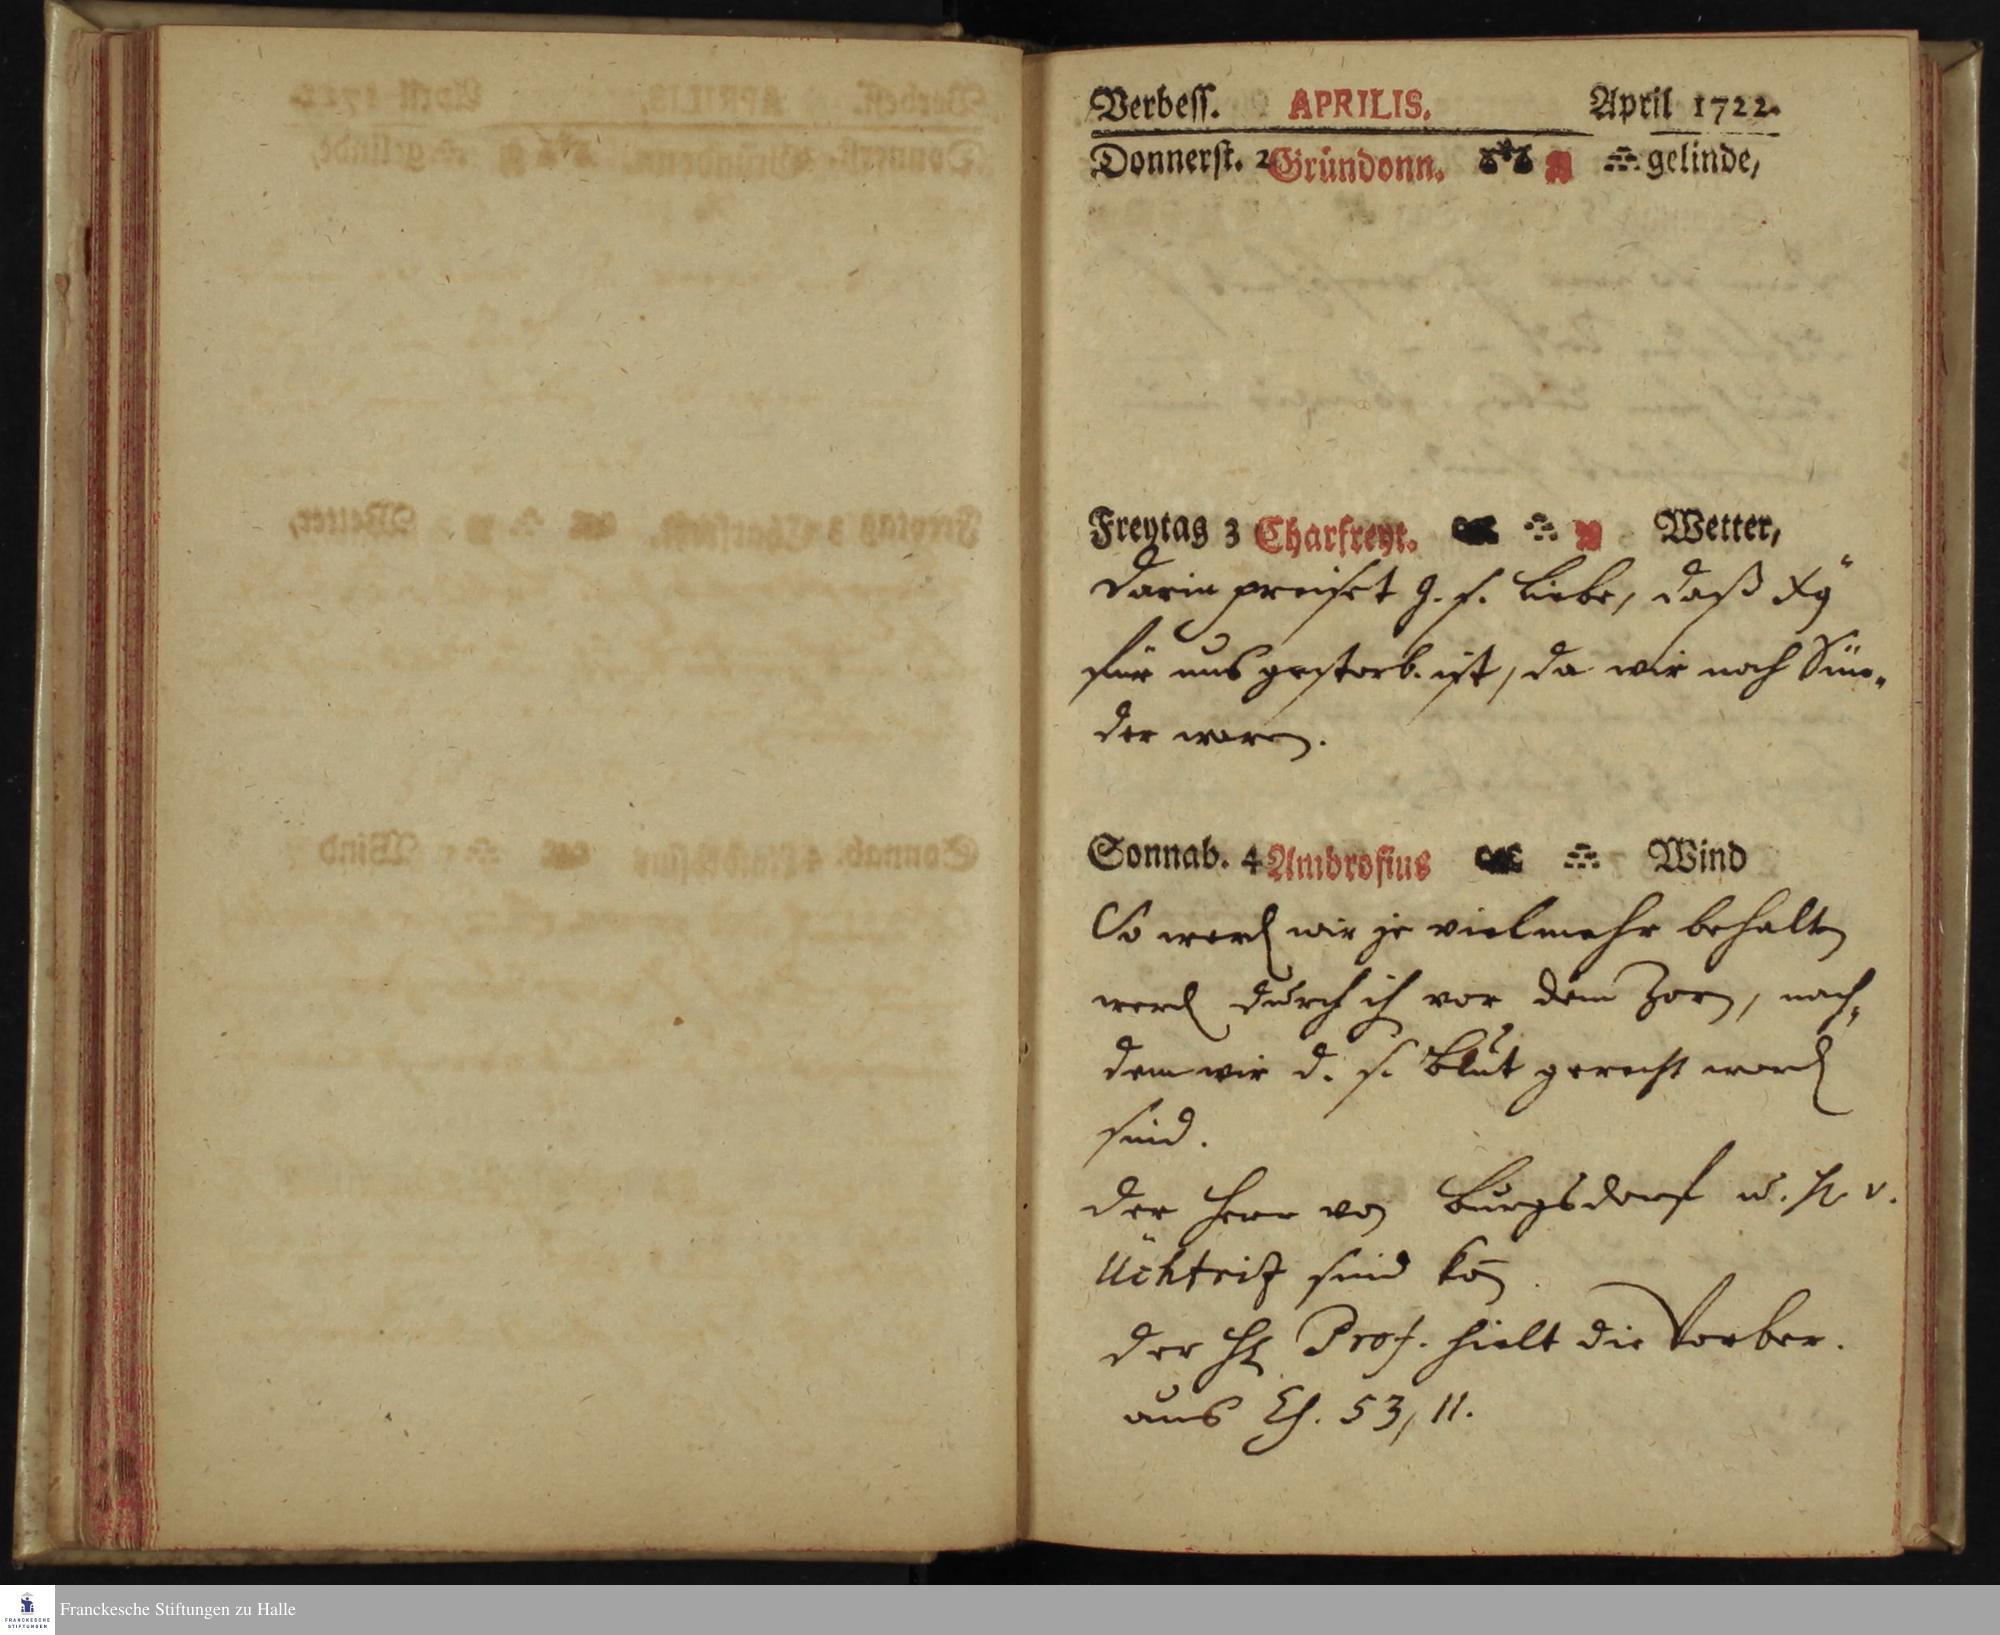 Verbess. APRILIS. April 1722.
Donnerst. 2 Gründonn. gelinde,
Freytag 3 Charfreyt. Wetter,
Darin preiset G. s. Liebe, daß Xg
für uns gestorb. ist, da wir noch Sün-
der waren.
Sonnab. 4 Ambrosius Wind
So werd wir je vielmehr behalten
werd durch ih vor dem Zorn, nach-
dem wir d. s. Blut gerecht word
sind.
Der Herr von Burgsdorf u. H. v.
Üchtritz sind kom̄
Der H. Prof. hielt die Vorber.
aus Es. 53, 11.
FRANCKESCHE
STIFTUNGEN
Franckesche Stiftungen zu Halle